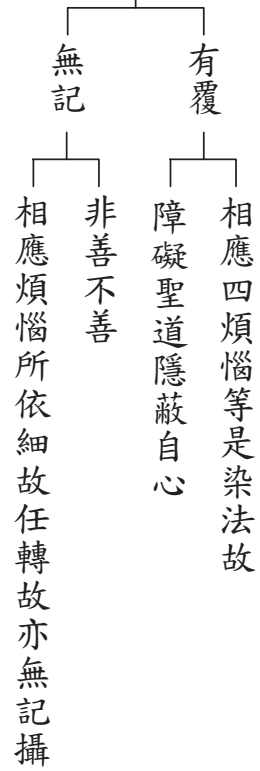 有覆
相應四煩惱等是染法故
障礙聖道隱蔽自心
無記
非善不善
相應煩惱所依細故任轉故亦無記攝